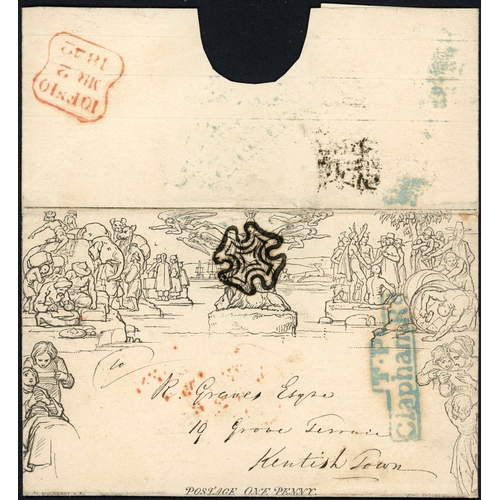 10FN10
MR 2
1842
T.P
Clapham
to
R. Graves Esqre
19 Grove Terrace
Kentish Town
POSTAGE ONE PENNY.